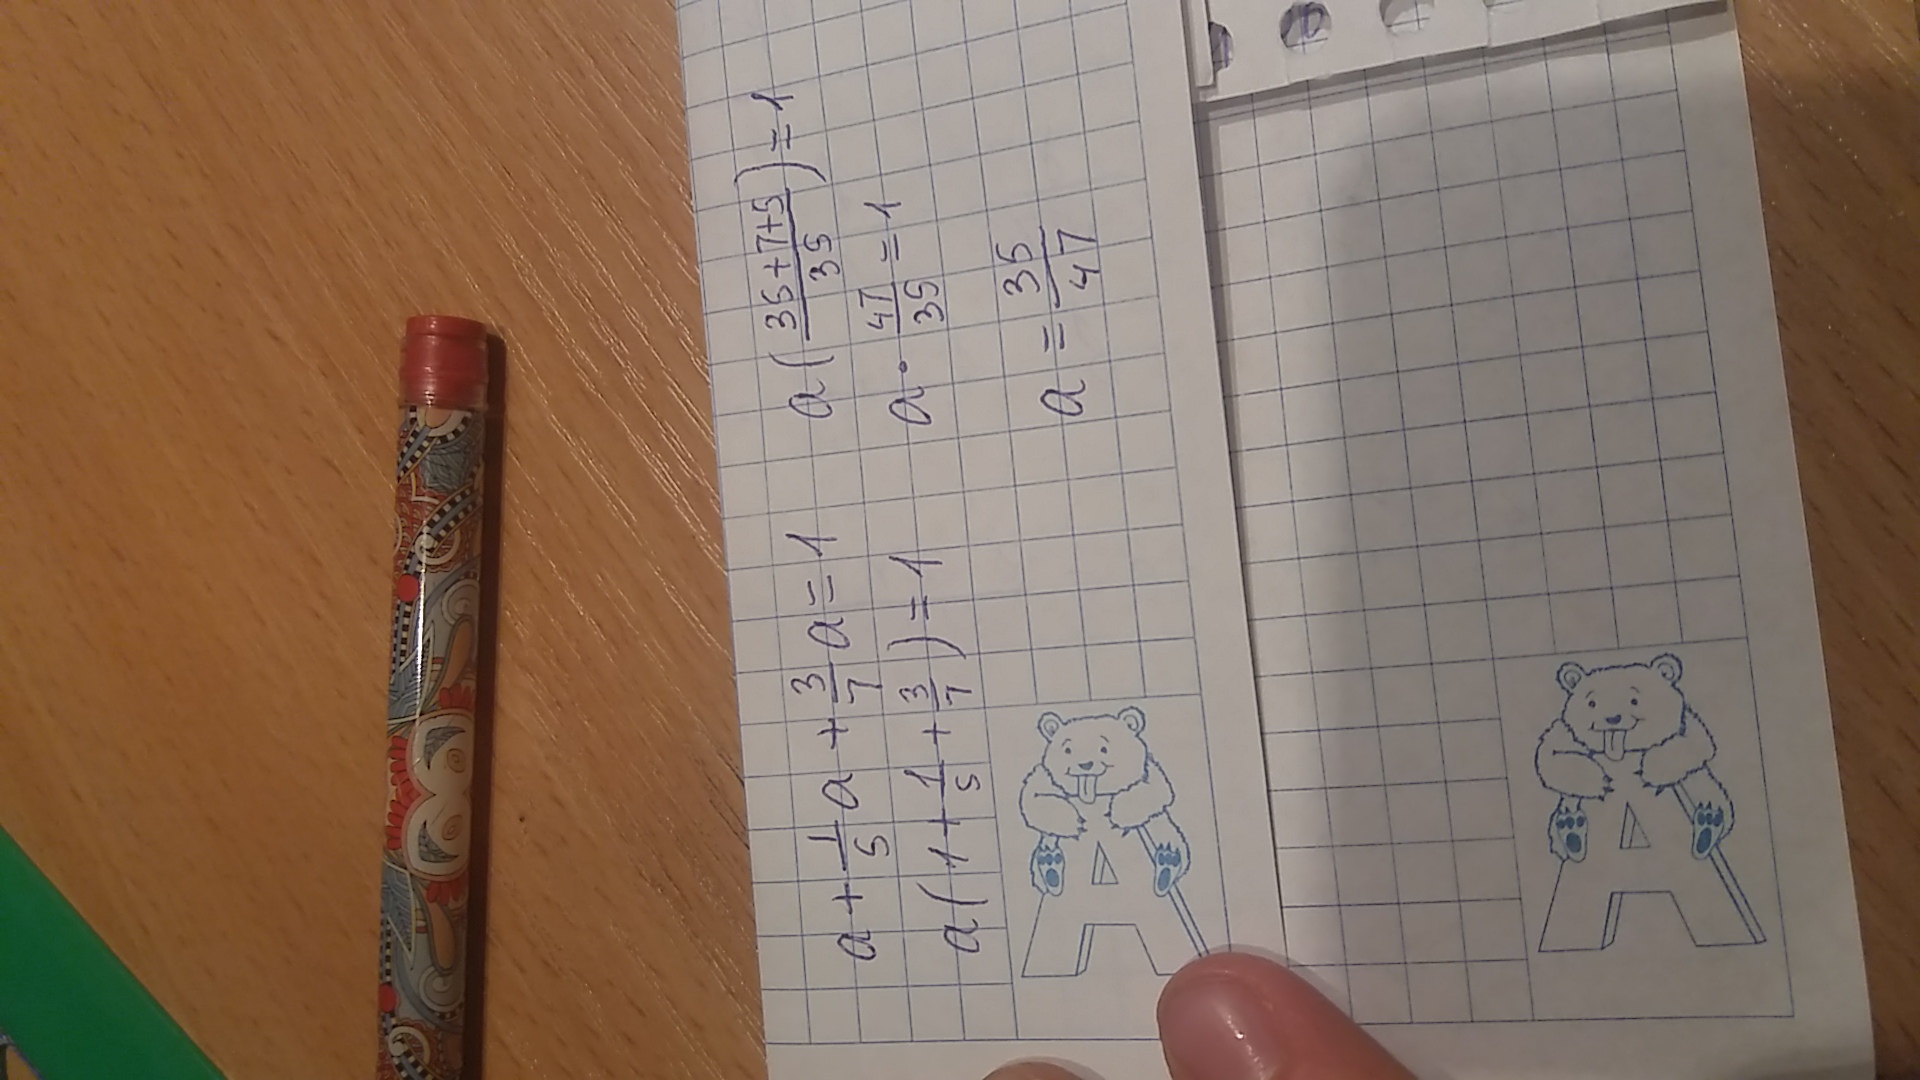 a + 1/5 a + 3/7 a = 1
a(1 + 1/5 + 3/7) = 1
a((35+7+5)/35) = 1
a · 47/35 = 1
a = 35/47
A
A